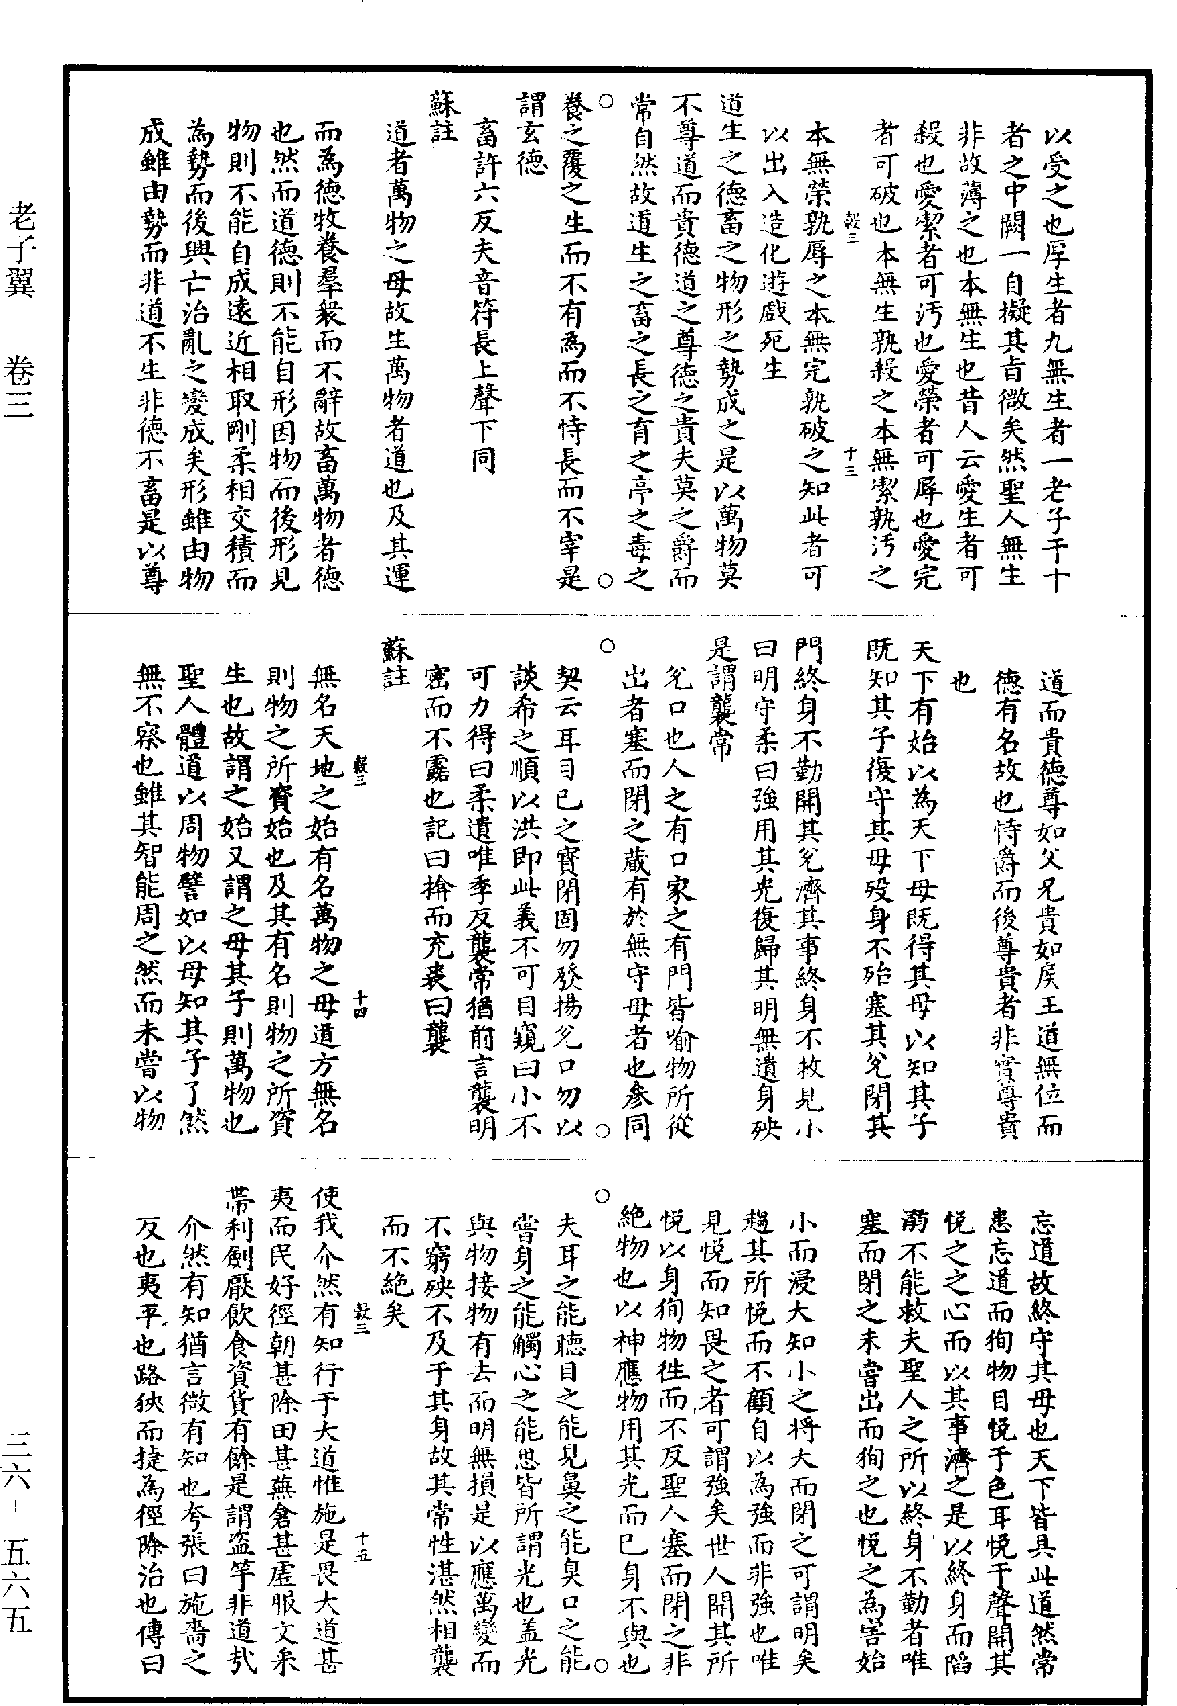 以受之也厚生者九無生者一老子于十
者之中闕一自擬其㫖微矣然聖人無生
非故薄之也本無生也昔人云愛生者可
殺也愛潔者可汚也愛榮者可辱也愛完
者可破也本無生孰殺之本無潔孰汚之
穀三
十三
本無榮孰辱之本無完孰破之知此者可
以出入造化遊戲死生
道生之德畜之物形之勢成之是以萬物莫
不尊道而貴德道之尊德之貴夫莫之爵而
常自然故道生之畜之長之育之亭之毒之
○
○
養之覆之生而不有為而不恃長而不宰是
謂玄德
畜許六反夫音符長上聲下同
蘇註
道者萬物之母故生萬物者道也及其運
而為德牧養羣衆而不辭故畜萬物者德
也然而道德則不能自形因物而後形見
物則不能自成遠近相取剛柔相交積而
為勢而後興亡治亂之變成矣形雖由物
成雖由勢而非道不生非德不畜是以尊
道而貴德尊如父兄貴如侯王道無位而
德有名故也恃爵而後尊貴者非實尊貴
也
天下有始以為天下母既得其母以知其子
既知其子復守其母歿身不殆塞其兌閉其
門終身不勤開其兌濟其事終身不救見小
曰明守柔曰強用其光復歸其明無遺身殃
是謂襲常
兌口也人之有口家之有門皆喻物所從
出者塞而閉之藏有於無守母者也參同
○
○
契云耳目已之寶閉固勿發揚兌口勿以
談希之順以洪即此義不可目窺曰小不
可力得曰柔遺唯季反襲常猶前言襲明
密而不露也記曰揜而充裘曰襲
蘇註
無名天地之始有名萬物之母道方無名
穀三
十四
則物之所資始也及其有名則物之所資
生也故謂之始又謂之母其子則萬物也
聖人體道以周物譬如以母知其子了然
無不察也雖其智能周之然而未嘗以物
忘道故終守其母也天下皆具此道然常
患忘道而徇物目悅于色耳悅于聲開其
悅之之心而以其事濟之是以終身而陷
溺不能救夫聖人之所以終身不勤者唯
塞而閉之未嘗出而徇之也悅之為害始
小而浸大知小之將大而閉之可謂明矣
趨其所悅而不顧自以為強而非強也唯
見悅而知畏之者可謂強矣世人開其所
悅以身徇物徃而不反聖人塞而閉之非
絶物也以神應物用其光而已身不與也
○
○
夫耳之能聽目之能見鼻之能臭口之能
嘗身之能觸心之能思皆所謂光也盖光
與物接物有去而明無損是以應萬變而
不窮殃不及于其身故其常性湛然相襲
而不絶矣
穀三
十五
使我介然有知行于大道惟施是畏大道甚
夷而民好徑朝甚除田甚蕪倉甚虛服文采
帶利劍厭飲食資貨有餘是謂盜竽非道㢤
介然有知猶言微有知也夸張曰施嗇之
反也夷平也路狹而捷為徑除治也傳曰
老子翼 卷三
三六-五六五